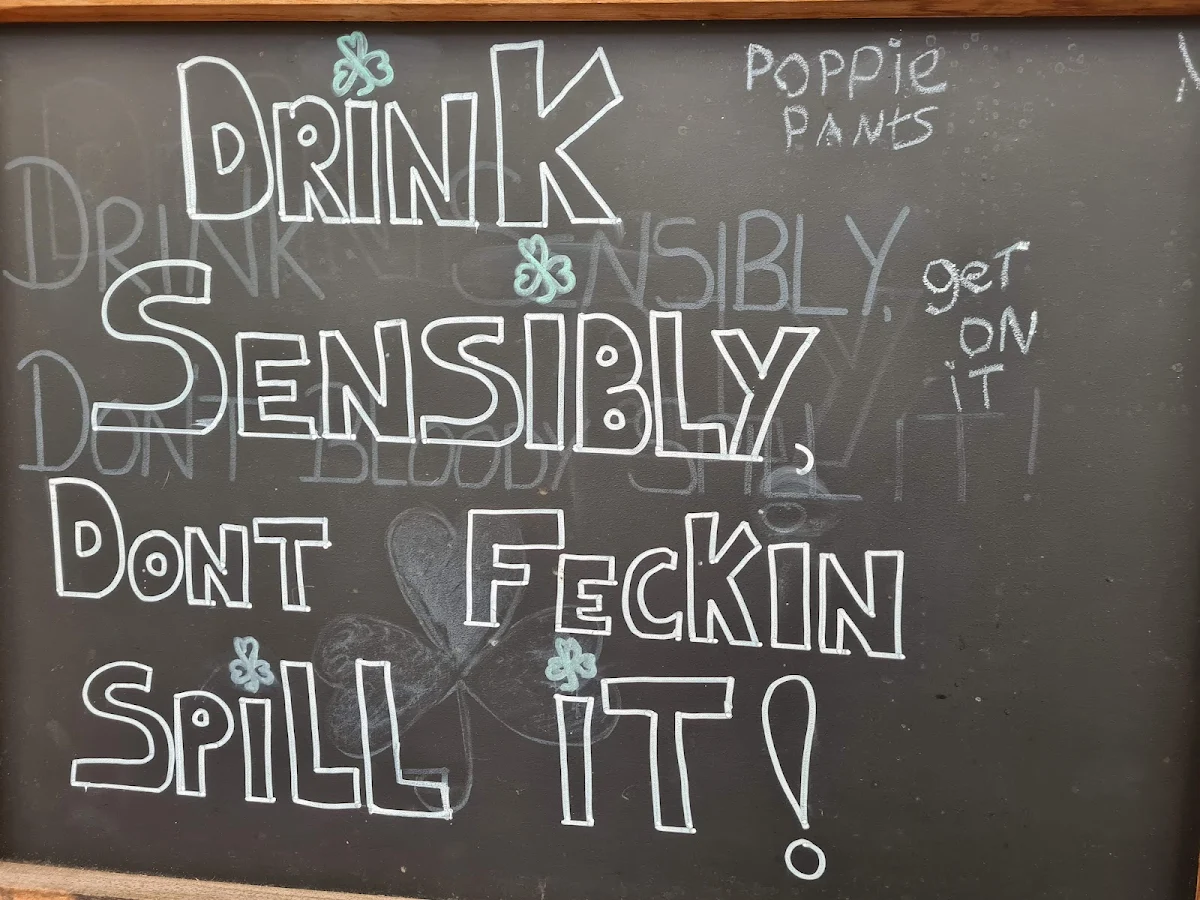 DRiNK
SENSIBLY,
DONT FECKIN
SPiLL iT!
POPPie
PANtS
geT
ON
iT
DRINK SENSIBLY,
DONT BLOODY SPILL IT!